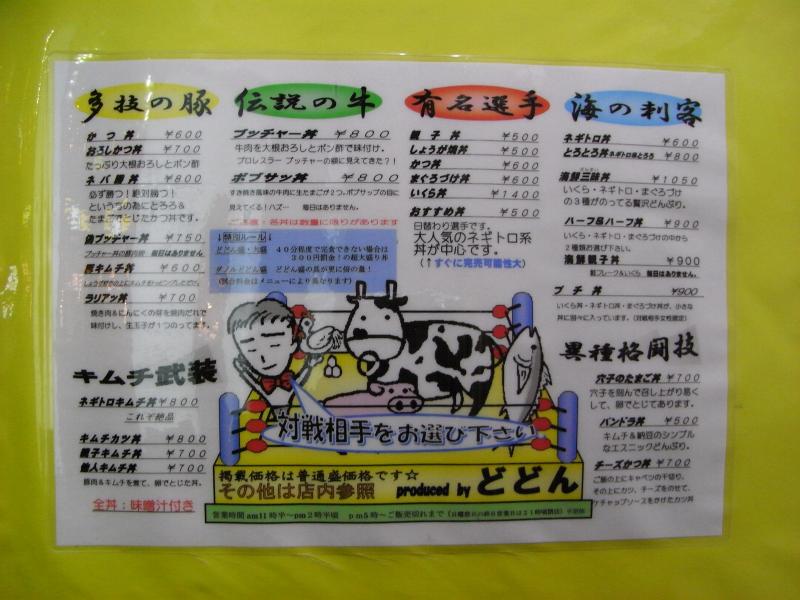 多技の豚
かつ丼 ¥600
おろしかつ丼 ¥700
たっぷり大根おろしとポン酢
ネバ勝丼 ¥800
必ず勝つ!絶対勝つ!
というちの為にとろろ&
たまごでとじたかつ丼です。
偽ブッチャー丼 ¥750
ブッチャー丼の豚肉版 毎日はありません
豚キムチ丼 ¥600
ラリアッ丼 ¥700
焼き肉&にんにくの芽を焼肉だれで
味付けし、生玉子が1つのってます。
キムチ武装
ネギトロキムチ丼 ¥800
これぞ絶品
キムチカツ丼 ¥800
親子キムチ丼 ¥700
他人キムチ丼 ¥700
豚肉&キムチを煮て、卵でとじた丼。
全丼:味噌汁付き
伝説の牛
ブッチャー丼 ¥800
牛肉を大根おろしとポン酢で味付け。
プロレスラー ブッチャーの額に見えてきた?!
ボブサップ丼 ¥800
すき焼き風味の牛肉に生たまごが2つ。ボブサップの目に
見えてくる!ハズ… 毎日はありません。
ご注意:各丼は数量に限りがあります
↓特肉ルール↓
どどん盛・大盛 40分程度で完食できない場合は
300円罰金!の超大盛り丼
ダブルどどん盛 どどん盛の具が更に倍の量!
(試合料金はメニューにより異なります)
有名選手
親子丼 ¥500
しょうが焼丼 ¥500
かつ丼 ¥600
まぐろづけ丼 ¥600
いくら丼 ¥1400
おすすめ丼 ¥500
日替わり選手です。
大人気のネギトロ系
丼が中心です。
(↑すぐに完売可能性大)
海の刺客
ネギトロ丼 ¥600
とろとろ丼ネギトロ&とろろ ¥800
海鮮三昧丼 ¥1050
いくら・ネギトロ・まぐろづけ
の3種がのってる贅沢どんぶり。
ハーフ&ハーフ丼 ¥900
いくら・ネギトロ・まぐろづけの中から
2種類お選び下さい。
海鮮親子丼 ¥900
鮭フレーク&いくら 毎日はありません。
プチ丼 ¥900
いくら丼・ネギトロ丼・まぐろづけ丼が、小さな
丼に別々に入っています。(対戦相手女性限定)
異種格闘技
穴子のたまご丼 ¥700
穴子を刻んで召し上がり易く
して、卵でとじてあります。
パンドラ丼 ¥500
キムチ&納豆のシンプル
なエスニックどんぶり。
チーズかつ丼 ¥700
ご飯の上にキャベツの千切り、
その上にカツ、チーズをのせて、
ケチャップソースをかけたカツ丼
対戦相手をお選び下さい
掲載価格は普通盛価格です☆
その他は店内参照 produced by どどん
営業時間 am11時半~pm2時半頃 pm5時~ご販売切れまで